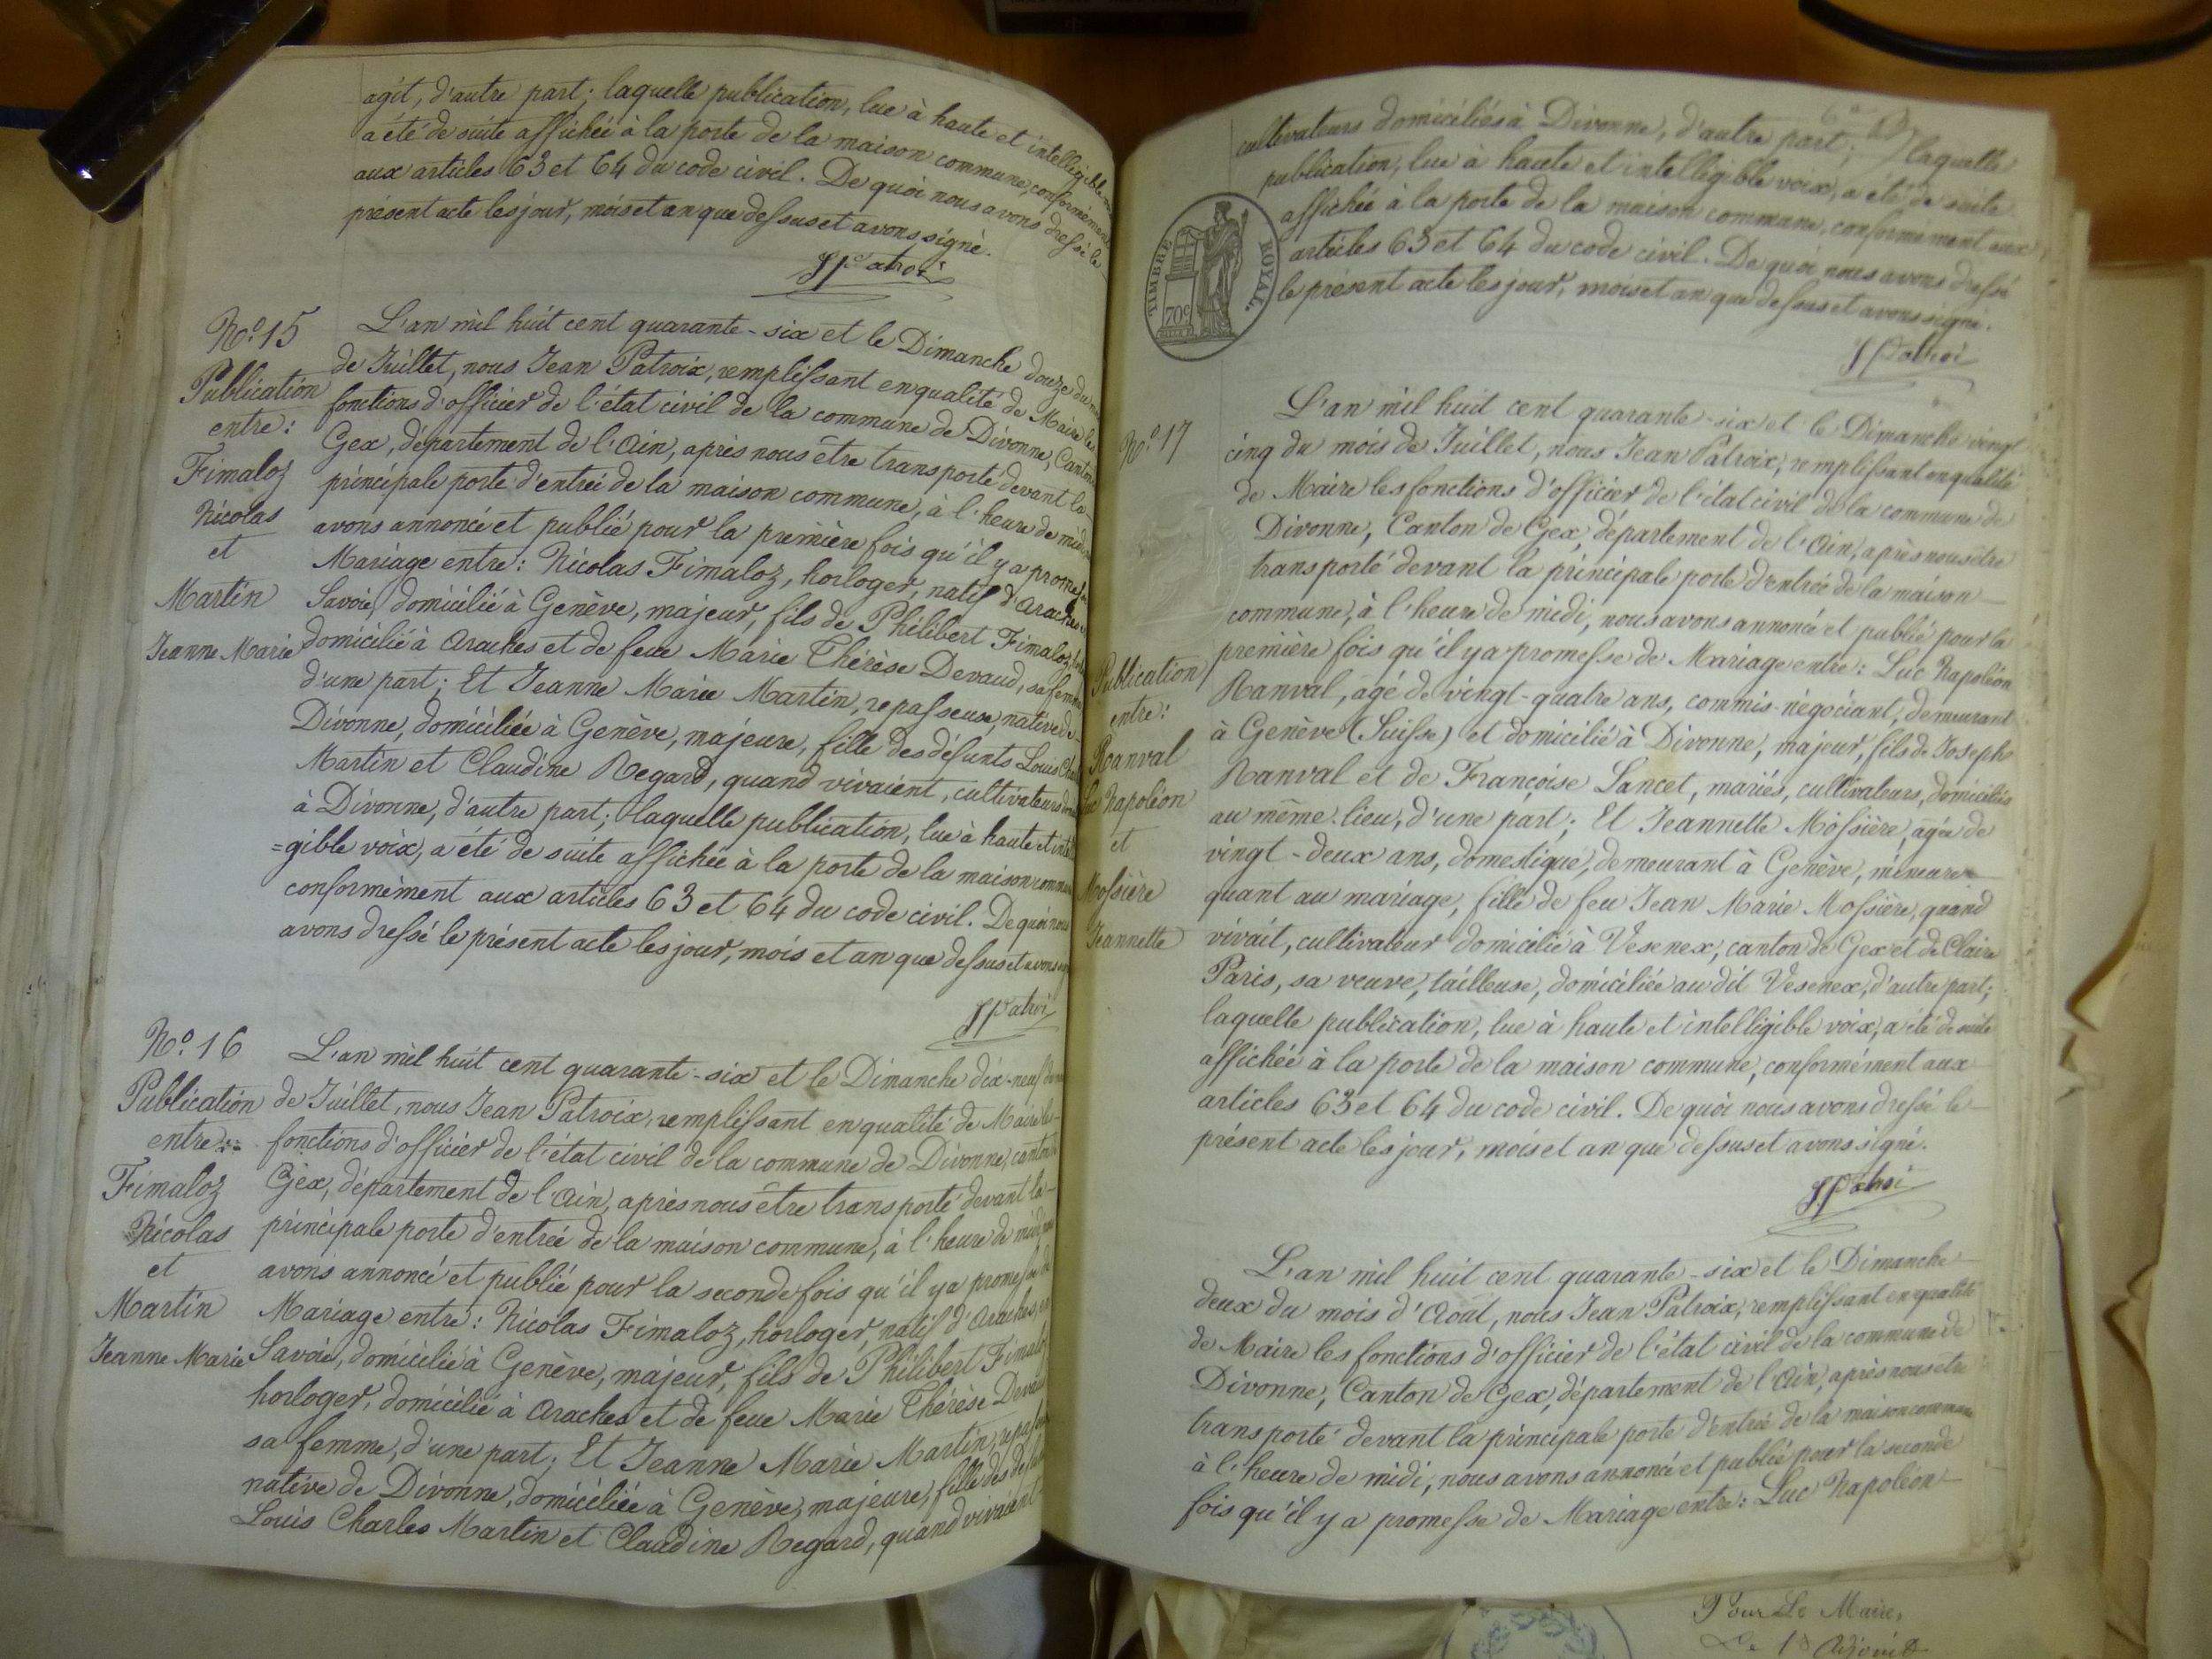 agit, d'autre part; laquelle publication, lue à haute et intelligible
a été de suite affichée à la porte de la maison commune, conformément
aux articles 63 et 64 du code civil. De quoi nous avons dressé le
présent acte les jour, mois et an que dessus et avons signé.
JPatroi
N.º 15
Publication
entre:
Fimaloz
Nicolas
et
Martin
Jeanne Marie
L'an mil huit cent quarante-six et le Dimanche douze du
de Juillet, nous Jean Patroix, remplissant en qualité de Maire les
fonctions d'officier de l'état civil de la commune de Divonne, Canton
Gex, département de l'Ain, après nous être transporté devant la
principale porte d'entrée de la maison commune, à l'heure de midi
avons annoncé et publié pour la première fois qu'il y a promesse
Mariage entre: Nicolas Fimaloz, horloger, natif d'Araches
Savoie, domicilié à Genève, majeur, fils de Philibert Fimaloz,
domicilié à Araches et de feue Marie Thérèse Devaud, sa femme
d'une part; Et Jeanne Marie Martin, repasseuse, native de
Divonne, domiciliée à Genève, majeure, fille des défunts Louis
Martin et Claudine Regard, quand vivaient, cultivateurs
à Divonne, d'autre part; laquelle publication, lue à haute et
=gible voix, a été de suite affichée à la porte de la maison
conformément aux articles 63 et 64 du code civil. De quoi nous
avons dressé le présent acte les jour, mois et an que dessus et avons
JPatroi
N.º 16
Publication
entre:
Fimaloz
Nicolas
et
Martin
Jeanne Marie
L'an mil huit cent quarante-six et le Dimanche dix-neuf
de Juillet, nous Jean Patroix, remplissant en qualité de Maire les
fonctions d'officier de l'état civil de la commune de Divonne, canton
Gex, département de l'Ain, après nous être transporté devant la
principale porte d'entrée de la maison commune, à l'heure de midi
avons annoncé et publié pour la seconde fois qu'il y a promesse
Mariage entre: Nicolas Fimaloz, horloger, natif d'Araches, en
Savoie, domicilié à Genève, majeur, fils de Philibert Fimaloz
horloger, domicilié à Araches et de feue Marie Thérèse Devaud
sa femme, d'une part; Et Jeanne Marie Martin,
native de Divonne, domiciliée à Genève, majeure, fille des
Louis Charles Martin et Claudine Regard, quand vivaient
cultivateurs domiciliés à Divonne, d'autre part; laquelle
publication, lue à haute et intelligible voix, a été de suite
affichée à la porte de la maison commune, conformément aux
articles 63 et 64 du code civil. De quoi nous avons dressé
le présent acte les jour, mois et an que dessus et avons signé.
TIMBRE ROYAL.
70c
JPatroi
N.º 17
Publication
entre:
Ranval
Luc Napoléon
et
Mossière
Jeannette
L'an mil huit cent quarante-six et le Dimanche vingt
cinq du mois de Juillet, nous Jean Patroix, remplissant en qualité
de Maire les fonctions d'officier de l'état civil de la commune de
Divonne, Canton de Gex, département de l'Ain, après nous être
transporté devant la principale porte d'entrée de la maison
commune, à l'heure de midi, nous avons annoncé et publié pour la
première fois qu'il y a promesse de Mariage entre: Luc Napoléon
Ranval, âgé de vingt-quatre ans, commis-négociant, demeurant
à Genève (Suisse) et domicilié à Divonne, majeur, fils de Joseph
Ranval et de Françoise Lancet, mariés, cultivateurs, domiciliés
au même lieu, d'une part; Et Jeannette Mossière, âgée de
vingt-deux ans, domestique, demeurant à Genève, mineure
quant au mariage, fille de feu Jean Marie Mossière, quand
vivait, cultivateur domicilié à Vesenex, canton de Gex et de Claire
Paris, sa veuve, tailleuse, domiciliée au dit Vesenex, d'autre part;
laquelle publication, lue à haute et intelligible voix, a été de suite
affichée à la porte de la maison commune, conformément aux
articles 63 et 64 du code civil. De quoi nous avons dressé le
présent acte les jour, mois et an que dessus et avons signé.
JPatroi
L'an mil huit cent quarante-six et le Dimanche
deux du mois d'Août, nous Jean Patroix, remplissant en qualité
de Maire les fonctions d'officier de l'état civil de la commune de
Divonne, Canton de Gex, département de l'Ain, après nous être
transporté devant la principale porte d'entrée de la maison commune
à l'heure de midi, nous avons annoncé et publié pour la seconde
fois qu'il y a promesse de Mariage entre: Luc Napoléon
Pour Le Maire,
Le 1er Adjoint